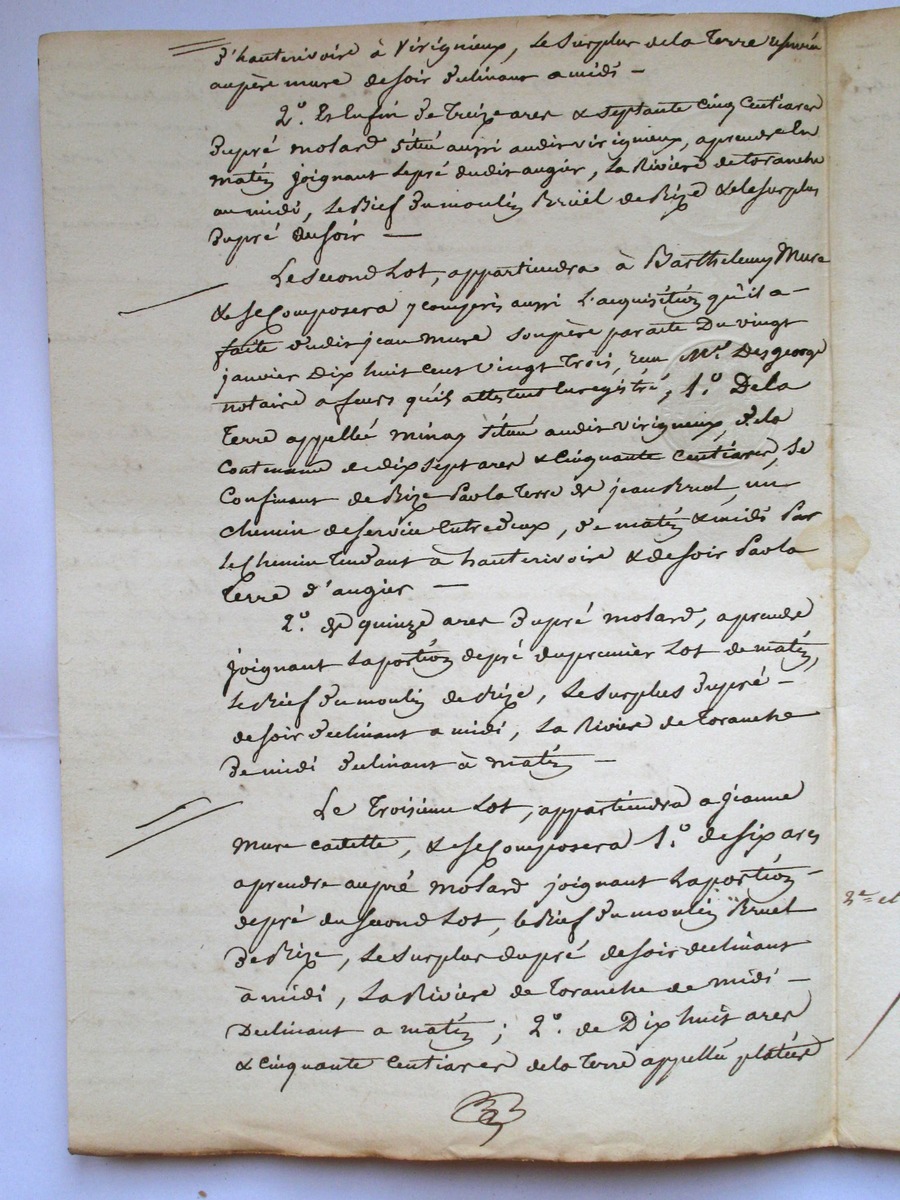 d'hauterivoire à Virignieux, le surplus de la terre
au père mure de soir declinant a midi —
2°. Et Enfin de Treize ares & septante cinq centiares
du pré molard situé aussi audit virignieux, a prendre
matin joignant le pré dudit augier, la Rivière de toranche
au midi, le Bief du moulin Bruël de Bize & le surplus
du pré du soir —
Le second Lot, appartiendra à Barthelemy Mure
& se Composera y compris aussi l'acquisition qu'il a —
faite dudit jean mure son père par acte du vingt
janvier Dix huit cent vingt trois, Mre Desgeorge
notaire a feurs qu'ils attestent enregistré, 1°. De la
Terre appellée minay située audit virignieux, de la
Contenance de dix sept ares & cinquante centiares, se
Confinant de Bize par la terre de jean Bruel, un
chemin de service entre deux, de matin & midi par
le chemin tendant à hauterivoire & de soir par la
terre d'augier —
2°. de quinze ares du pré molard, a prendre
joignant la portion de pré du premier Lot de matin,
le Bief du moulin de Bize, le surplus du pré —
de soir declinant a midi, la Rivière de toranche
de midi declinant à matin —
Le Troisième Lot, appartiendra a jeanne
mure cadette, & se Composera 1°. de six ares
a prendre au pré molard joignant la portion —
de pré du second Lot, le Bief du moulin Bruel
de Bize, le surplus du pré de soir declinant
à midi, la Rivière de toranche de midi —
Declinant a matin; 2°. de Dix huit ares
& cinquante centiares de la terre appellée
2e et